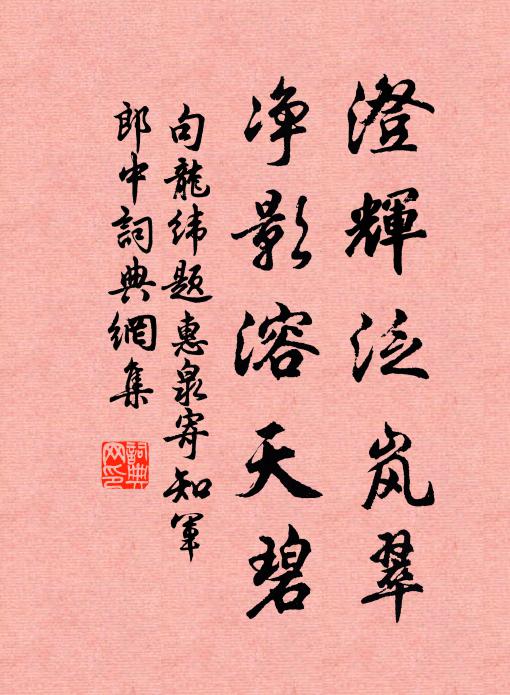 澄輝泛岚翠
净影溶天碧
句龍纬题惠泉寄知军
郎中詞典網集
詞典网印